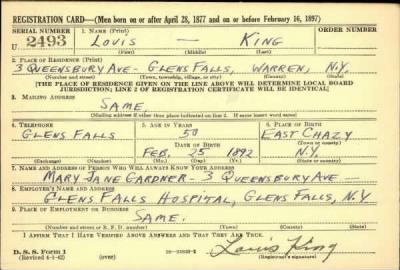 REGISTRATION CARD—(Men born on or after April 28, 1877 and on or before February 16, 1897)
SERIAL NUMBER 1. NAME (Print) ORDER NUMBER
U 2493 LOUIS — KING
(First) (Middle) (Last)
2. PLACE OF RESIDENCE (Print)
3 QUEENSBURY AVE - GLENS FALLS, WARREN, N.Y.
(Number and street) (Town, township, village, or city) (County) (State)
[THE PLACE OF RESIDENCE GIVEN ON THE LINE ABOVE WILL DETERMINE LOCAL BOARD
JURISDICTION; LINE 2 OF REGISTRATION CERTIFICATE WILL BE IDENTICAL]
3. MAILING ADDRESS
SAME.
(Mailing address if other than place indicated on line 2. If same insert word same)
4. TELEPHONE 5. AGE IN YEARS 6. PLACE OF BIRTH
GLENS FALLS 50 EAST CHAZY
DATE OF BIRTH (Town or county)
FEB. 25 1892 N.Y.
(Exchange) (Number) (Mo.) (Day) (Yr.) (State or country)
7. NAME AND ADDRESS OF PERSON WHO WILL ALWAYS KNOW YOUR ADDRESS
MARY JANE GARDNER - 3 QUEENSBURY AVE
8. EMPLOYER'S NAME AND ADDRESS
GLENS FALLS HOSPITAL, GLENS FALLS, N.Y.
9. PLACE OF EMPLOYMENT OR BUSINESS
SAME.
(Number and street or R. F. D. number) (Town) (County) (State)
I AFFIRM THAT I HAVE VERIFIED ABOVE ANSWERS AND THAT THEY ARE TRUE.
D. S. S. Form 1
(Revised 4-1-42) (over) Louis King
(Registrant's signature)